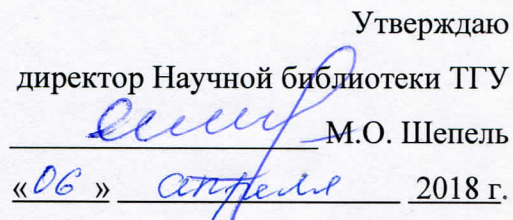 Утверждаю
директор Научной библиотеки ТГУ
М.О. Шепель
«06» апреля 2018 г.